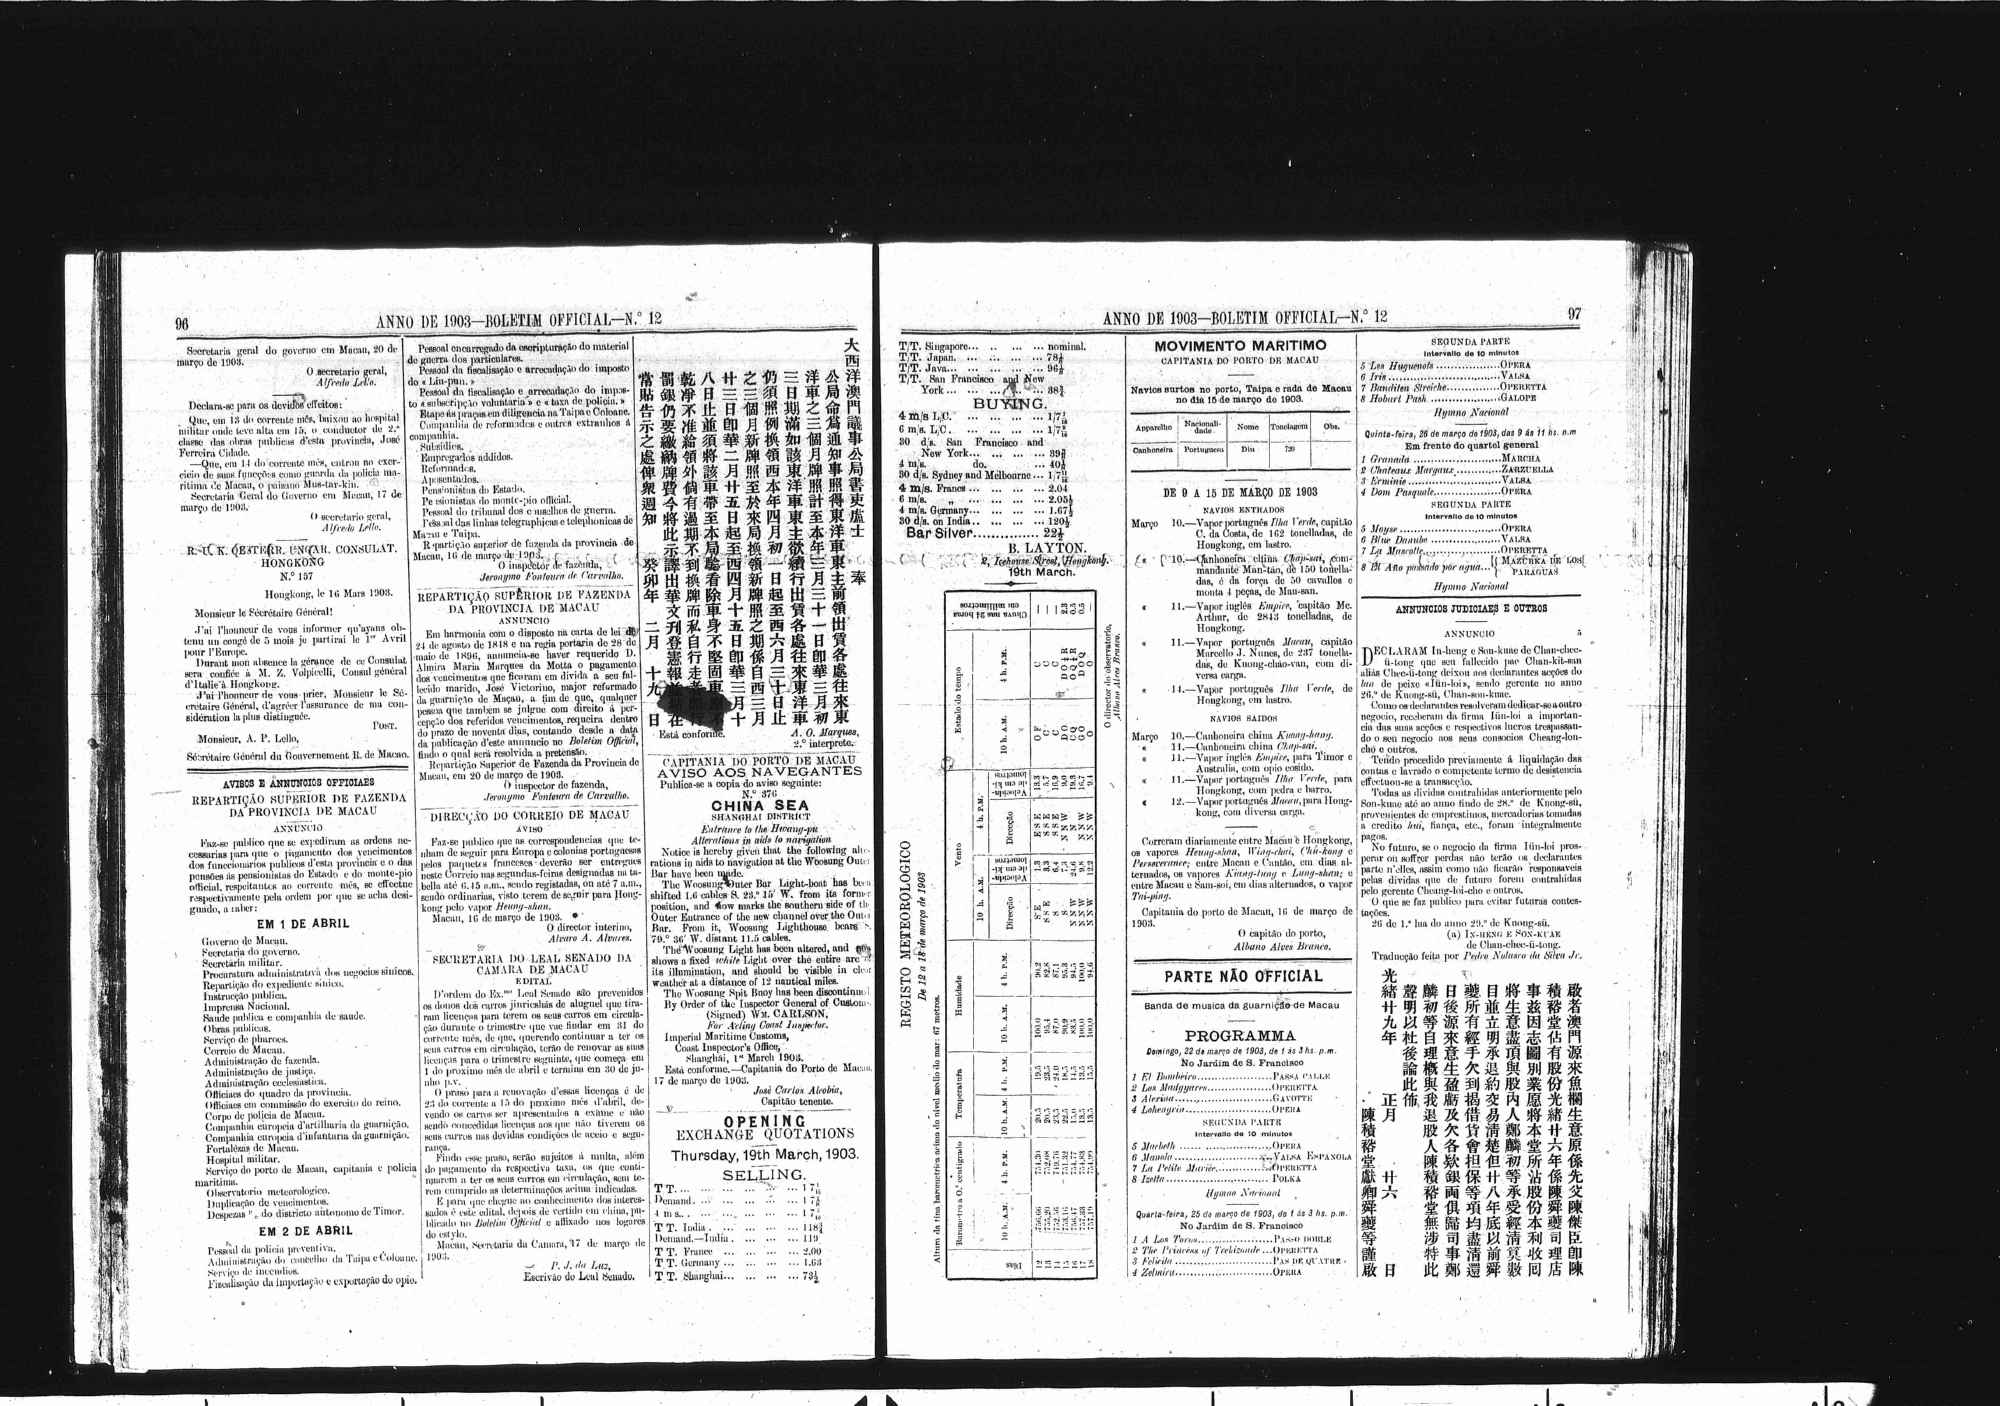 96
ANNO DE 1903—BOLETIM OFFICIAL—N.º 12
Secretaria geral do governo em Macau, 20 de
março de 1903.
O secretario geral,
Alfredo Lello.
Declara-se para os devidos effeitos:
Que, em 13 do corrente mês, baixou ao hospital
militar onde teve alta em 15, o conductor de 2.ª
classe das obras publicas d'esta provincia, José
Ferreira Cidade.
—Que, em 14 do corrente mês, entrou no exer-
cicio de suas funcções como guarda da policia ma-
ritima de Macau, o paisano Mus-tar-kin.
Secretaria Geral do Governo em Macau, 17 de
março de 1903.
O secretario geral,
Alfredo Lello.
R. U. K. OESTERR. UNGAR. CONSULAT.
HONGKONG
N.º 157
Hongkong, le 16 Mars 1903.
Monsieur le Sécrétaire Général!
J'ai l'honneur de vous informer qu'ayans ob-
tenu un congé de 5 mois je partirai le 1er Avril
pour l'Europe.
Durant mon absence la gérance de ce Consulat
sera confiée à M. Z. Volpicelli, Consul général
d'Italie à Hongkong.
J'ai l'honneur de vous prier, Monsieur le Sé-
crétaire Général, d'agréer l'assurance de ma con-
sidération la plus distinguée.
POST.
Monsieur, A. P. Lello,
Sécrétaire Général du Gouvernement R. de Macao.
AVISOS E ANNUNCIOS OFFICIAES
REPARTIÇÃO SUPERIOR DE FAZENDA
DA PROVINCIA DE MACAU
ANNUNCIO
Faz-se publico que se expediram as ordens ne-
cessarias para que o pagamento dos vencimentos
dos funccionarios publicos d'esta provincia e o das
pensões ás pensionistas do Estado e do monte-pio
official, respeitantes ao corrente mês, se effectue
respectivamente pela ordem por que se acha desi-
gnado, a saber:
EM 1 DE ABRIL
Governo de Macau.
Secretaria do governo.
Secretaria militar.
Procuratura administrativa dos negocios sinicos.
Repartição do expediente sinico.
Instrucção publica.
Imprensa Nacional.
Saude publica e companhia de saude.
Obras publicas.
Serviço de pharoes.
Correio de Macau.
Administração de fazenda.
Administração de justiça.
Administração ecclesiastica.
Officiaes do quadro da provincia.
Officiaes em commissão do exercito do reino.
Corpo de policia de Macau.
Companhia europeia d'artilharia da guarnição.
Companhia europeia d'infantaria da guarnição.
Fortalezas de Macau.
Hospital militar.
Serviço do porto de Macau, capitania e policia
maritima.
Observatorio meteorologico.
Duplicação de vencimentos.
do districto autonomo de Timor.
EM 2 DE ABRIL
Pessoal da policia preventiva.
Administração do concelho da Taipa e Coloane.
Serviço de incendios.
Fiscalisação da importação e exportação do opio.
Pessoal encarregado da escripturação do material
de guerra dos particulares.
Pessoal da fiscalisação e arrecadação do imposto
do «Liu-pun.»
Pessoal da fiscalisação e arrecadação do impos-
to «subscripção voluntaria» e «taxa de policia.»
Etape ás praças em diligencia na Taipa e Coloane.
Companhia de reformados e outros extranhos á
companhia.
Subsidios.
Empregados addidos.
Reformados.
Aposentados.
Pensionistas do Estado.
Pensionistas do monte-pio official.
Pessoal do tribunal dos conselhos de guerra.
Pessoal das linhas telegraphicas e telephonicas de
Macau e Taipa.
Repartição superior de fazenda da provincia de
Macau, 16 de março de 1903.
O inspector de fazenda,
Jeronymo Fontoura de Carvalho.
REPARTIÇÃO SUPERIOR DE FAZENDA
DA PROVINCIA DE MACAU
ANNUNCIO
Em harmonia com o disposto na carta de lei de
24 de agosto de 1848 e na regia portaria de 28 de
maio de 1896, annuncia-se haver requerido D.
Almira Maria Marques da Motta o pagamento
dos vencimentos que ficaram em divida a seu fal-
lecido marido, José Victorino, major reformado
da guarnição de Macau, a fim de que, qualquer
pessoa que tambem se julgue com direito á per-
cepção dos referidos vencimentos, requeira dentro
do prazo de noventa dias, contando desde a data
da publicação d'este annuncio no Boletim Official,
findo o qual será resolvida a pretensão.
Repartição Superior de Fazenda da Provincia de
Macau, em 20 de março de 1903.
O inspector de fazenda,
Jeronymo Fontoura de Carvalho.
DIRECÇÃO DO CORREIO DE MACAU
AVISO
Faz-se publico que as correspondencias que te-
nham de seguir para Europa e colonias portuguesas
pelos paquetes franceses deverão ser entregues
neste Correio nas segundas-feiras designadas na ta-
bella até 6.45 a.m., sendo registadas, ou até 7 a.m.,
sendo ordinarias, visto terem de seguir para Hong-
kong pelo vapor Heung-shan.
Macau, 16 de março de 1903.
O director interino,
Alvaro A. Alvares.
SECRETARIA DO LEAL SENADO DA
CAMARA DE MACAU
EDITAL
D'ordem do Ex.mo Leal Senado são prevenidos
os donos dos carros jinricshás de aluguel que tira-
ram licenças para terem os seus carros em circula-
ção durante o trimestre que vae findar em 31 do
corrente mês, de que, querendo continuar a ter os
seus carros em circulação, terão de renovar as suas
licenças para o trimestre seguinte, que começa em
1 do proximo mês de abril e termina em 30 de ju-
nho p.v.
O praso para a renovação d'essas licenças é de
23 do corrente a 15 do proximo mês d'abril, de-
vendo os carros ser apresentados a exame e não
sendo concedidas licenças aos que não tiverem os
seus carros nas devidas condições de aceio e segu-
rança.
Findo esse praso, serão sujeitos á multa, além
do pagamento da respectiva taxa, os que conti-
nuarem a ter os seus carros em circulação, sem te-
rem cumprido as determinações acima indicadas.
E para que chegue ao conhecimento dos interes-
sados é este edital, depois de vertido em china, pu-
blicado no Boletim Official e affixado nos logares
do estylo.
Macau, Secretaria da Camara, 17 de março de
1903.
P. J. da Luz,
Escrivão do Leal Senado.
大西洋澳門議事公局書吏盧士 奉
公局命爲通知事照得東洋車東主前領出賃各處往來東
洋車之三個月牌照計至本年三月三十一日卽華三月初
三日期滿如該東洋車東主欲續行出賃各處往來東洋車
仍須照例換領西本年四月初一日起至西六月三十日止
之三個月新牌照至於來局換領新牌照之期係自西三月
廿三日卽華二月廿五日起至西四月十五日卽華三月十
八日止並須將該車帶至本局驗看除車身不堅固
乾淨不准給領外倘有過期不到換牌而私自行走
罰銀仍要繳納牌費今將此示譯出華文刊登憲報
常貼告示之處俾衆週知 癸卯年 二月 十九 日
Está conforme.
A. O. Marques,
2.º interprete.
CAPITANIA DO PORTO DE MACAU
AVISO AOS NAVEGANTES
Publica-se a copia do aviso seguinte:
N.º 376
CHINA SEA
SHANGHAI DISTRICT
Entrance to the Hwang-pu
Alterations in aids to navigation
Notice is hereby given that the following alte-
rations in aids to navigation at the Woosung Outer
Bar have been made.
The Woosung Outer Bar Light-boat has been
shifted 1.6 cables S. 23.º 15' W. from its former
position, and now marks the southern side of the
Outer Entrance of the new channel over the Outer
Bar. From it, Woosung Lighthouse bears S.
79.º 36' W. distant 11.5 cables.
The Woosung Light has been altered, and now
shows a fixed white Light over the entire arc of
its illumination, and should be visible in clear
weather at a distance of 12 nautical miles.
The Woosung Spit Buoy has been discontinued.
By Order of the Inspector General of Customs,
(Signed) WM. CARLSON,
For Acting Coast Inspector.
Imperial Maritime Customs,
Coast Inspector's Office,
Shanghai, 1st March 1903.
Está conforme.—Capitania do Porto de Macau,
17 de março de 1903.
José Carlos Alcobia,
Capitão tenente.
OPENING
EXCHANGE QUOTATIONS
Thursday, 19th March, 1903.
SELLING.
T T.
Demand.
4 m s.
T T. India 118¾
Demand.—India 119
T T. France 2.00
T T. Germany 1.63
T T. Shanghai 73½
97
ANNO DE 1903—BOLETIM OFFICIAL—N.º 12
T/T. Singapore nominal.
T/T. Japan 78½
T/T. Java 96½
T/T. San Francisco and New
York 38¾
BUYING.
4 m/s L/C.
6 m/s. L/C.
30 d/s. San Francisco and
New York
4 m/s. do. 40½
30 d/s. Sydney and Melbourne
4 m/s. Francs 2.04
6 m/s. „ 2.05½
4 m/s. Germany 1.67½
30 d/s. on India 120½
Bar Silver 22½
B. LAYTON.
2, Icehouse Street, Hongkong.
19th March.
REGISTO METEOROLOGICO
De 12 a 18 de março de 1903
Altura da tina barometrica acima do nivel medio do mar: 67 metros.
Dias
Barometro a 0.º centigrado
Temperatura
Humidade
Vento
Estado do tempo
Chuva nas 24 horas
em millimetros
10 h. A.M.
4 h. P.M.
Direcção
Velocida-
de em ki-
lometros
12 756.66 754.30 20.5 19.5 100.0 90.2 SE 1.3 ESE 13.3 OF C —
13 755.20 752.08 20.5 23.5 95.4 82.8 SSE 3.3 SSE 5.7 C C —
14 752.36 749.76 23.5 24.0 87.0 87.1 S 6.4 S 16.9 C C —
O director do observatorio,
Albano Alves Branco.
MOVIMENTO MARITIMO
CAPITANIA DO PORTO DE MACAU
Navios surtos no porto, Taipa e rada de Macau
no dia 15 de março de 1903.
Apparelho Nacionali-
dade Nome Tonelagem Obs.
Canhoneira Portuguesa Diu 720
DE 9 A 15 DE MARÇO DE 1903
NAVIOS ENTRADOS
Março 10.—Vapor português Ilha Verde, capitão
C. da Costa, de 162 tonelladas, de
Hongkong, em lastro.
« 10.—Canhoneira china Chap-sai, com-
mandante Man-tão, de 150 tonella-
das, é da força de 50 cavallos e
monta 4 peças, de Mau-san.
« 11.—Vapor inglês Empire, capitão Mc.
Arthur, de 2843 tonelladas, de
Hongkong.
« 11.—Vapor português Macau, capitão
Marcello J. Nunes, de 237 tonella-
das, de Kuong-cháo-van, com di-
versa carga.
« 14.—Vapor português Ilha Verde, de
Hongkong, em lastro.
NAVIOS SAIDOS
Março 10.—Canhoneira china Kuang-hang.
« 11.—Canhoneira china Chap-sai.
« 11.—Vapor inglês Empire, para Timor e
Australia, com opio cosido.
« 11.—Vapor português Ilha Verde, para
Hongkong, com pedra e barro.
« 12.—Vapor português Macau, para Hong-
kong, com diversa carga.
Correram diariamente entre Macau e Hongkong,
os vapores Heung-shan, Wing-chai, Chü-kong e
Perseverance; entre Macau e Cantão, em dias al-
ternados, os vapores Kiang-tung e Lung-shan; e
entre Macau e Sam-soi, em dias alternados, o vapor
Tai-ping.
Capitania do porto de Macau, 16 de março de
1903.
O capitão do porto,
Albano Alves Branco.
PARTE NÃO OFFICIAL
Banda de musica da guarnição de Macau
PROGRAMMA
Domingo, 22 de março de 1903, de 1 ás 3 hs. p.m.
No Jardim de S. Francisco
1 El Bombeiro PASSA CALLE
2 Los Madgyares OPERETTA
3 Alerina GAVOTTE
4 Lohengrin OPERA
SEGUNDA PARTE
Intervallo de 10 minutos
5 Macbeth OPERA
6 Manola VALSA ESPANOLA
7 La Petite Mariée OPERETTA
8 Izetta POLKA
Hymno Nacional
Quarta-feira, 25 de março de 1903, de 1 ás 3 hs. p.m.
No Jardim de S. Francisco
1 A Los Toros PASSO DOBLE
2 The Princess of Trebizonde OPERETTA
3 Felicita PAS DE QUATRE
4 Zelmira OPERA
SEGUNDA PARTE
Intervallo de 10 minutos
5 Les Huguenots OPERA
6 Iris VALSA
7 Banditen Streiche OPERETTA
8 Hobart Pash GALOPE
Hymno Nacional
Quinta-feira, 26 de março de 1903, das 9 ás 11 hs. p.m
Em frente do quartel general
1 Granada MARCHA
2 Chateaux Margaux ZARZUELLA
3 Erminie VALSA
4 Dom Pasquale OPERA
SEGUNDA PARTE
Intervallo de 10 minutos
5 Moyse OPERA
6 Blue Danube VALSA
7 La Mascotte OPERETTA
8 El Año pasado por agua { MAZURKA DE LOS
PARAGUAS
Hymno Nacional
ANNUNCIOS JUDICIAES E OUTROS
ANNUNCIO 5
DECLARAM In-heng e Son-kuae de Chan-chec-
ü-tong que seu fallecido pae Chan-kit-san
aliás Chec-ü-tong deixou aos declarantes acções do
lan de peixe «Iün-loi», sendo gerente no anno
26.º de Kuong-sü, Chan-son-kuae.
Como os declarantes resolveram dedicar-se a outro
negocio, receberam da firma Iün-loi a importan-
cia das suas acções e respectivos lucros trespassan-
do o seu negocio aos seus consocios Cheang-lon-
chó e outros.
Tendo procedido previamente á liquidação das
contas e lavrado o competente termo de desistencia
effectuou-se a transacção.
Todas as dividas contrahidas anteriormente pelo
Son-kuae até ao anno findo de 28.º de Kuong-sü,
provenientes de emprestimos, mercadorias tomadas
a credito hui, fiança, etc., foram integralmente
pagos.
No futuro, se o negocio da firma Iün-loi pros-
perar ou soffrer perdas não terão os declarantes
parte n'elles, assim como não ficarão responsaveis
pelas dividas que de futuro forem contrahidas
pelo gerente Cheang-loi-cho e outros.
O que se faz publico para evitar futuras contes-
tações.
26 de 1.ª lua do anno 29.º de Kuong-sü.
(a) IN-HENG E SON-KUAE
de Chan-chec-ü-tong.
Traducção feita por Pedro Nolasco da Silva Jr.
啟者澳門源來魚欄生意原係先父陳傑臣卽陳
積裕堂佔有股份光緒廿六年係陳舜夔司理店
事茲因志圖別業愿將本堂所沾股份本利收囘
將生意盡頂與股內人鄭麟初等承受經清筭數
目並立明承退約交易清楚但廿八年底以前舜
夔所有經手欠到揭借貨會担保等項均盡清還
日後源來意生盈虧及欠各欵銀両俱歸司事鄭
麟初等自理概與我退股人陳積裕堂無涉特此
聲明以杜後論此佈
陳積裕堂獻卿舜夔等謹啟
光緒廿九年 正月 廿六 日